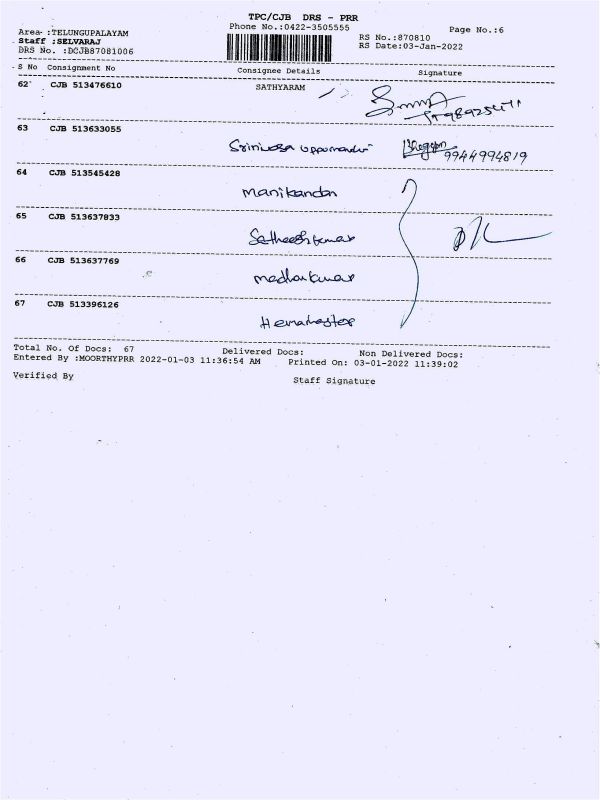 TPC/CJB DRS - PRR
Phone No.:0422-3505555
Page No.:6
Area :TELUNGUPALAYAM
Staff :SELVARAJ
DRS No. :DCJB87081006
RS No.:870810
RS Date:03-Jan-2022
S No Consignment No Consignee Details Signature
62 CJB 513476610 SATHYARAM
63 CJB 513633055
Srinivasa
9944994819
64 CJB 513545428
Manikandan
65 CJB 513637833
Satheeshkumar
66 CJB 513637769
Madhankumar
67 CJB 513396126
Total No. Of Docs: 67 Delivered Docs: Non Delivered Docs:
Entered By :MOORTHYPRR 2022-01-03 11:36:54 AM Printed On: 03-01-2022 11:39:02
Verified By Staff Signature